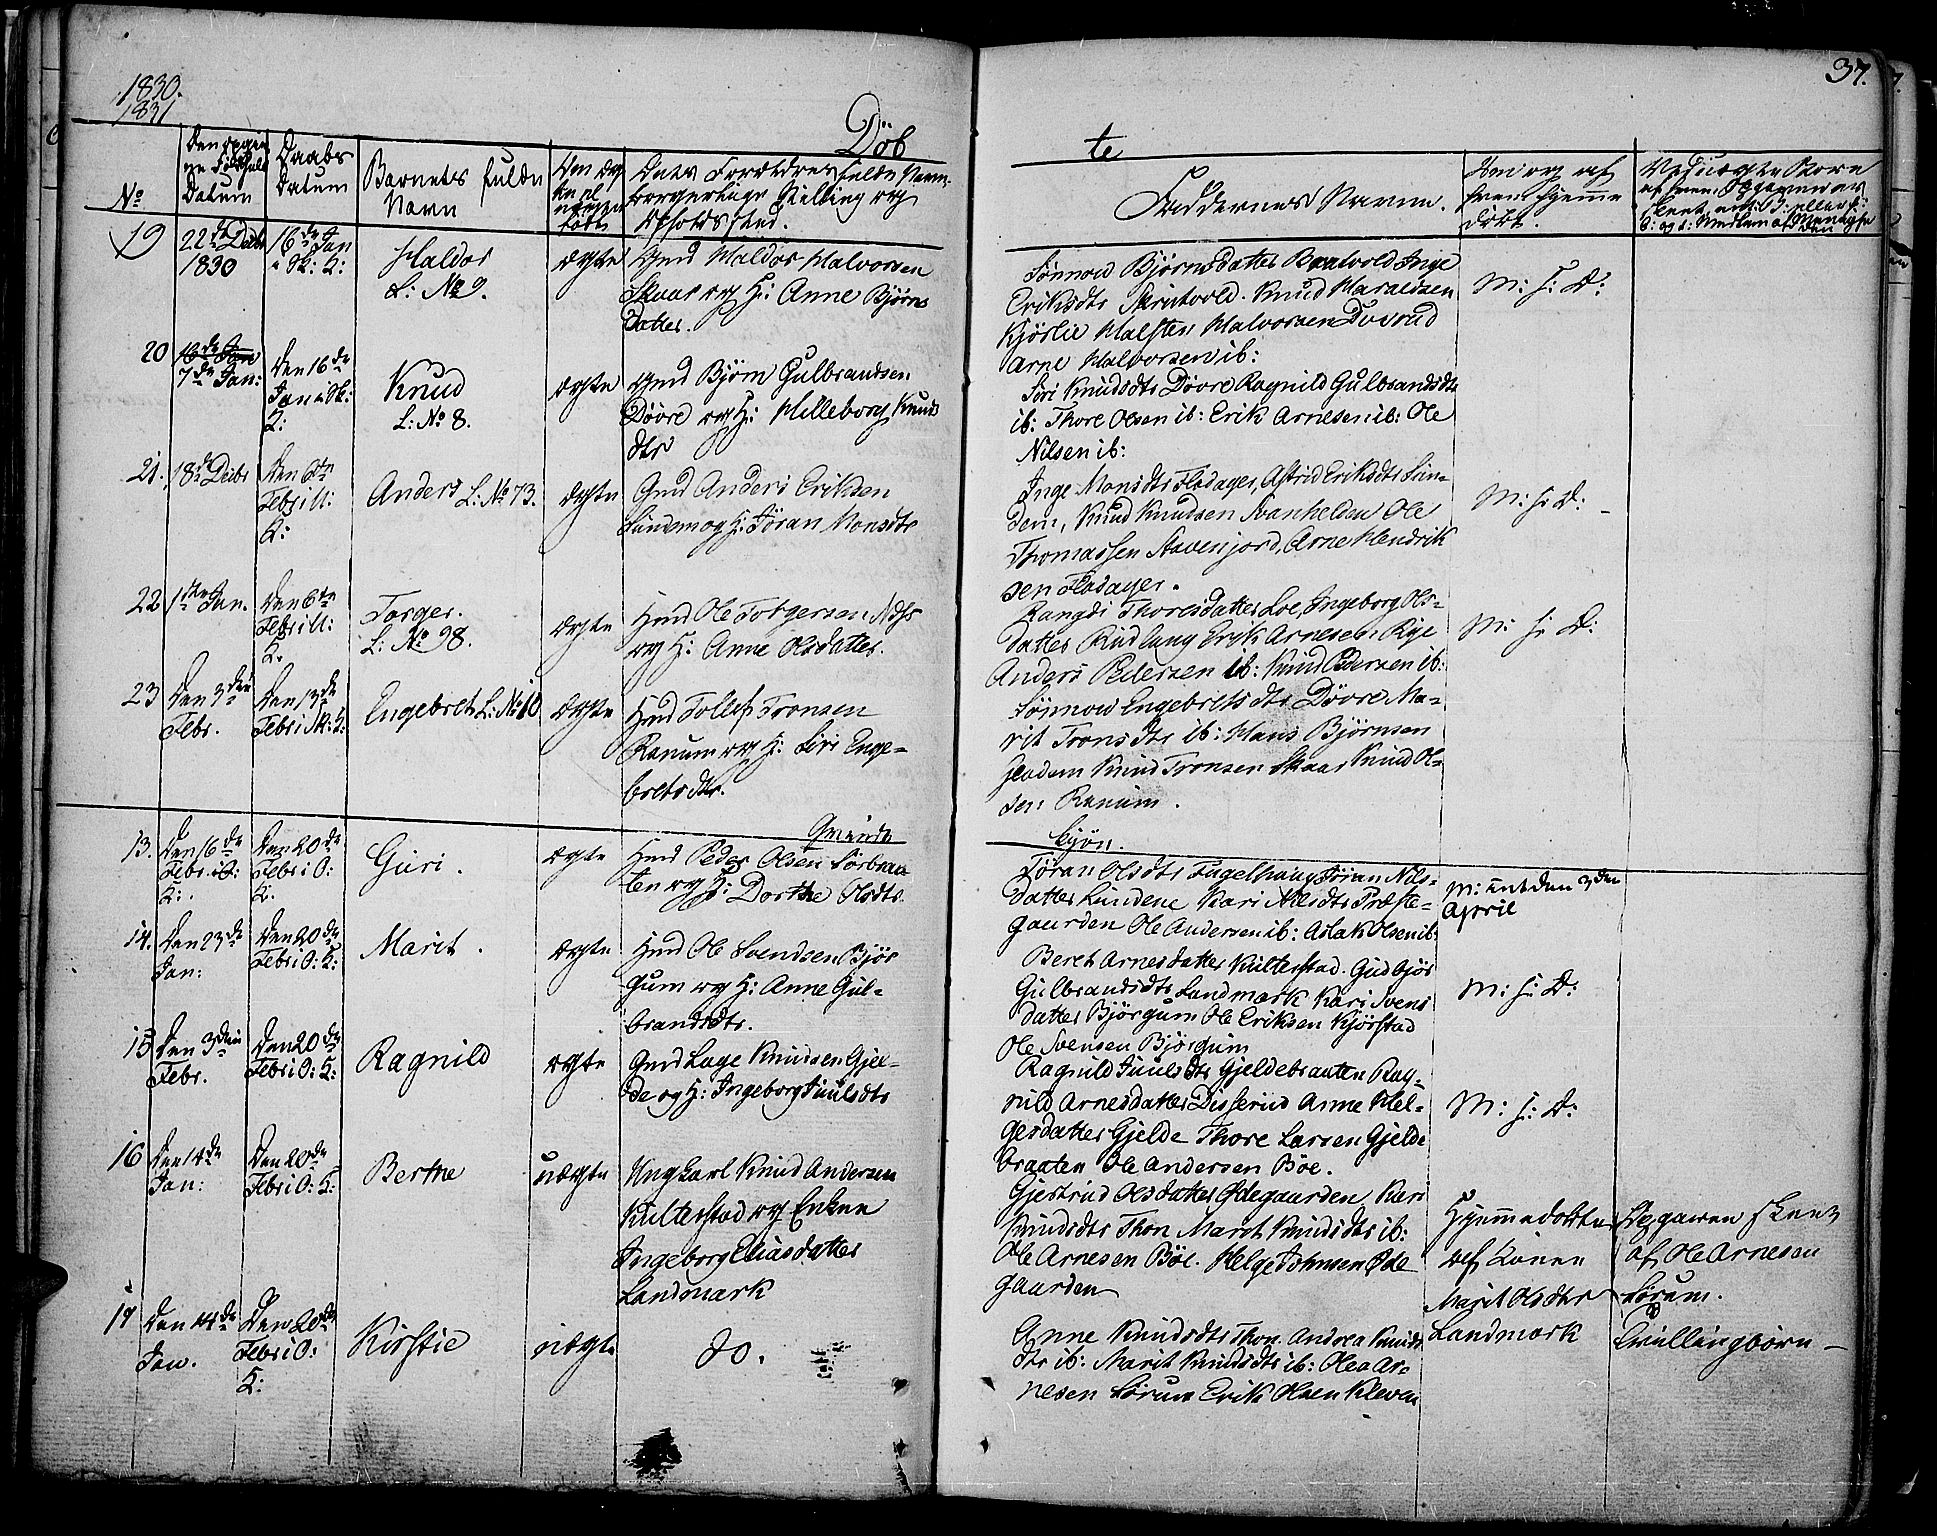 1830.
1831
37.
Döb
te
No
Datum
Daabs
Datum
Barnets fulde
Navn
Faddernes Navne.
19
22de Debr
1830
16de Jan
i Sk: K:
Haldor
L: No 9.
ægte
Gmd Haldor Halvorsen
Skaar og H: Anne Bjørns
datter.
Sønnow Bjørnsdatter Inge
Eriksdtr Knud Haraldsen
Kjörlie Halsten Halvorsen Dovrud
Arne Halvorsen ib:
M: f: D:
20
16de Jan
7de Jan:
Den 16de
Jan i Sk:
K:
Knud
L: No 8.
ægte
Gmd Bjørn Gulbrandsen
Dövre og H: Hilleborg Knuds
dtr
Siri Knudsdtr Dövre Ragnild Gulbrandsdtr
ib: Thore Olsen ib: Erik Arnesen ib: Ole
Nilsen ib:
21.
18de Debr
Den 6te
Febr i U:
K:
Anders L: No 73.
ægte
Gmd Anders Eriksen
Lundem og H: Jöran Monsdtr
Inge Monsdtr Fladager, Astrid Eriksdtr Lun-
dem, Knud Knudsen Svanhelden Ole
Thomassen Stavensjord, Arne Hendrik
sen Fladager.
M: f: D: -
22
1ste Jan.
Den 6te
Febr i U:
K.
Torger.
L: No 98.
ægte
Hmd Ole Torgersen
og H: Anne Olsdatter.
Rangdi Thoresdatter Loe, Ingeborg Ols-
datter Rudlang Erik Arnesen Rye
Anders Pedersen ib: Knud Pedersen ib:
M: f: D:
23
Den 3die
Febr.
Den 13de
Febr i Sk: K:
Engebret L: No 10
ægte
Hmd Tollef Tronsen
Ranum og H: Siri Enge-
bretsdtr.
Sönnow Engebretsdtr Dövre Ma-
rit Tronsdtr ib: Hans Bjørnsen
Knud Tronsen Skaar Knud Ol-
sen Ranum.
Grunde
Syn.
13.
Den 16de
Febr. i O:
K:.
Den 20de
Febr i O:
K.
Guri.
ægte
Hmd Peder Olsen Sørbraa
ten og H: Dorthe Olsdtr.
Jöran Olsdtr Fugelhaug Jöran Nils-
datter Lundene Kari Nilsdtr Præste-
gaarden Ole Andersen ib: Aslak Olsen ib:
M: den 3den
April
14.
Den 23de
Jan:
Den 20de
Febr i O: K:
Marit.
ægte
Hmd Ole Svendsen Björ
gum og H: Anne Gul-
brandsdtr.
Beret Arnesdatter Kulterstad. Gudbjör
Gulbrandsdtr Landmark Kari Svens
datter Bjørgum Ole Eriksen Kjörstad
Ole Svensen Bjørgum
M: f: D:
15
Den 3die
Febr.
Den 20de
Febr i O: K:
Ragnild
ægte
Gmd Lage Knudsen Gjel-
de og H: Ingeborg Juulsdtr
Ragnild Juulsdtr Gjeldebraaten Rag-
nild Arnesdatter Disserud Anne Hel-
gesdatter Gjelde Thore Larsen Gjelde
braaten Ole Andersen Böe.
M: f: D:
16
Den 14de
Jan:
Den 20de
Febr i O: K:
Berthe
uægte
Ungkarl Knud Andersen
Kulterstad og Enken
Ingeborg Eliasdatter
Landmark
Gjertrud Olsdatter Ødegaarden Kari
Knudsdtr Thon Marit Knudsdtr ib:
Ole Arnesen Böe. Helge Johnsen Øde
gaarden
Hjemmedöbte
af Konen
Marit Olsdtr
Landmark
Angaven skeet
af Ole Arnesen
Sörum.
17
Den 14de
Jan.
Den 20de
Febr i O:
K:
Kirstie
uægte
do.
Anne Knudsdtr Thon. Andrea Knuds
dtr ib: Marit Knudsdtr ib: Ole Ar-
nesen Sörum Erik Olsen Kleven
Tvillingbörn -